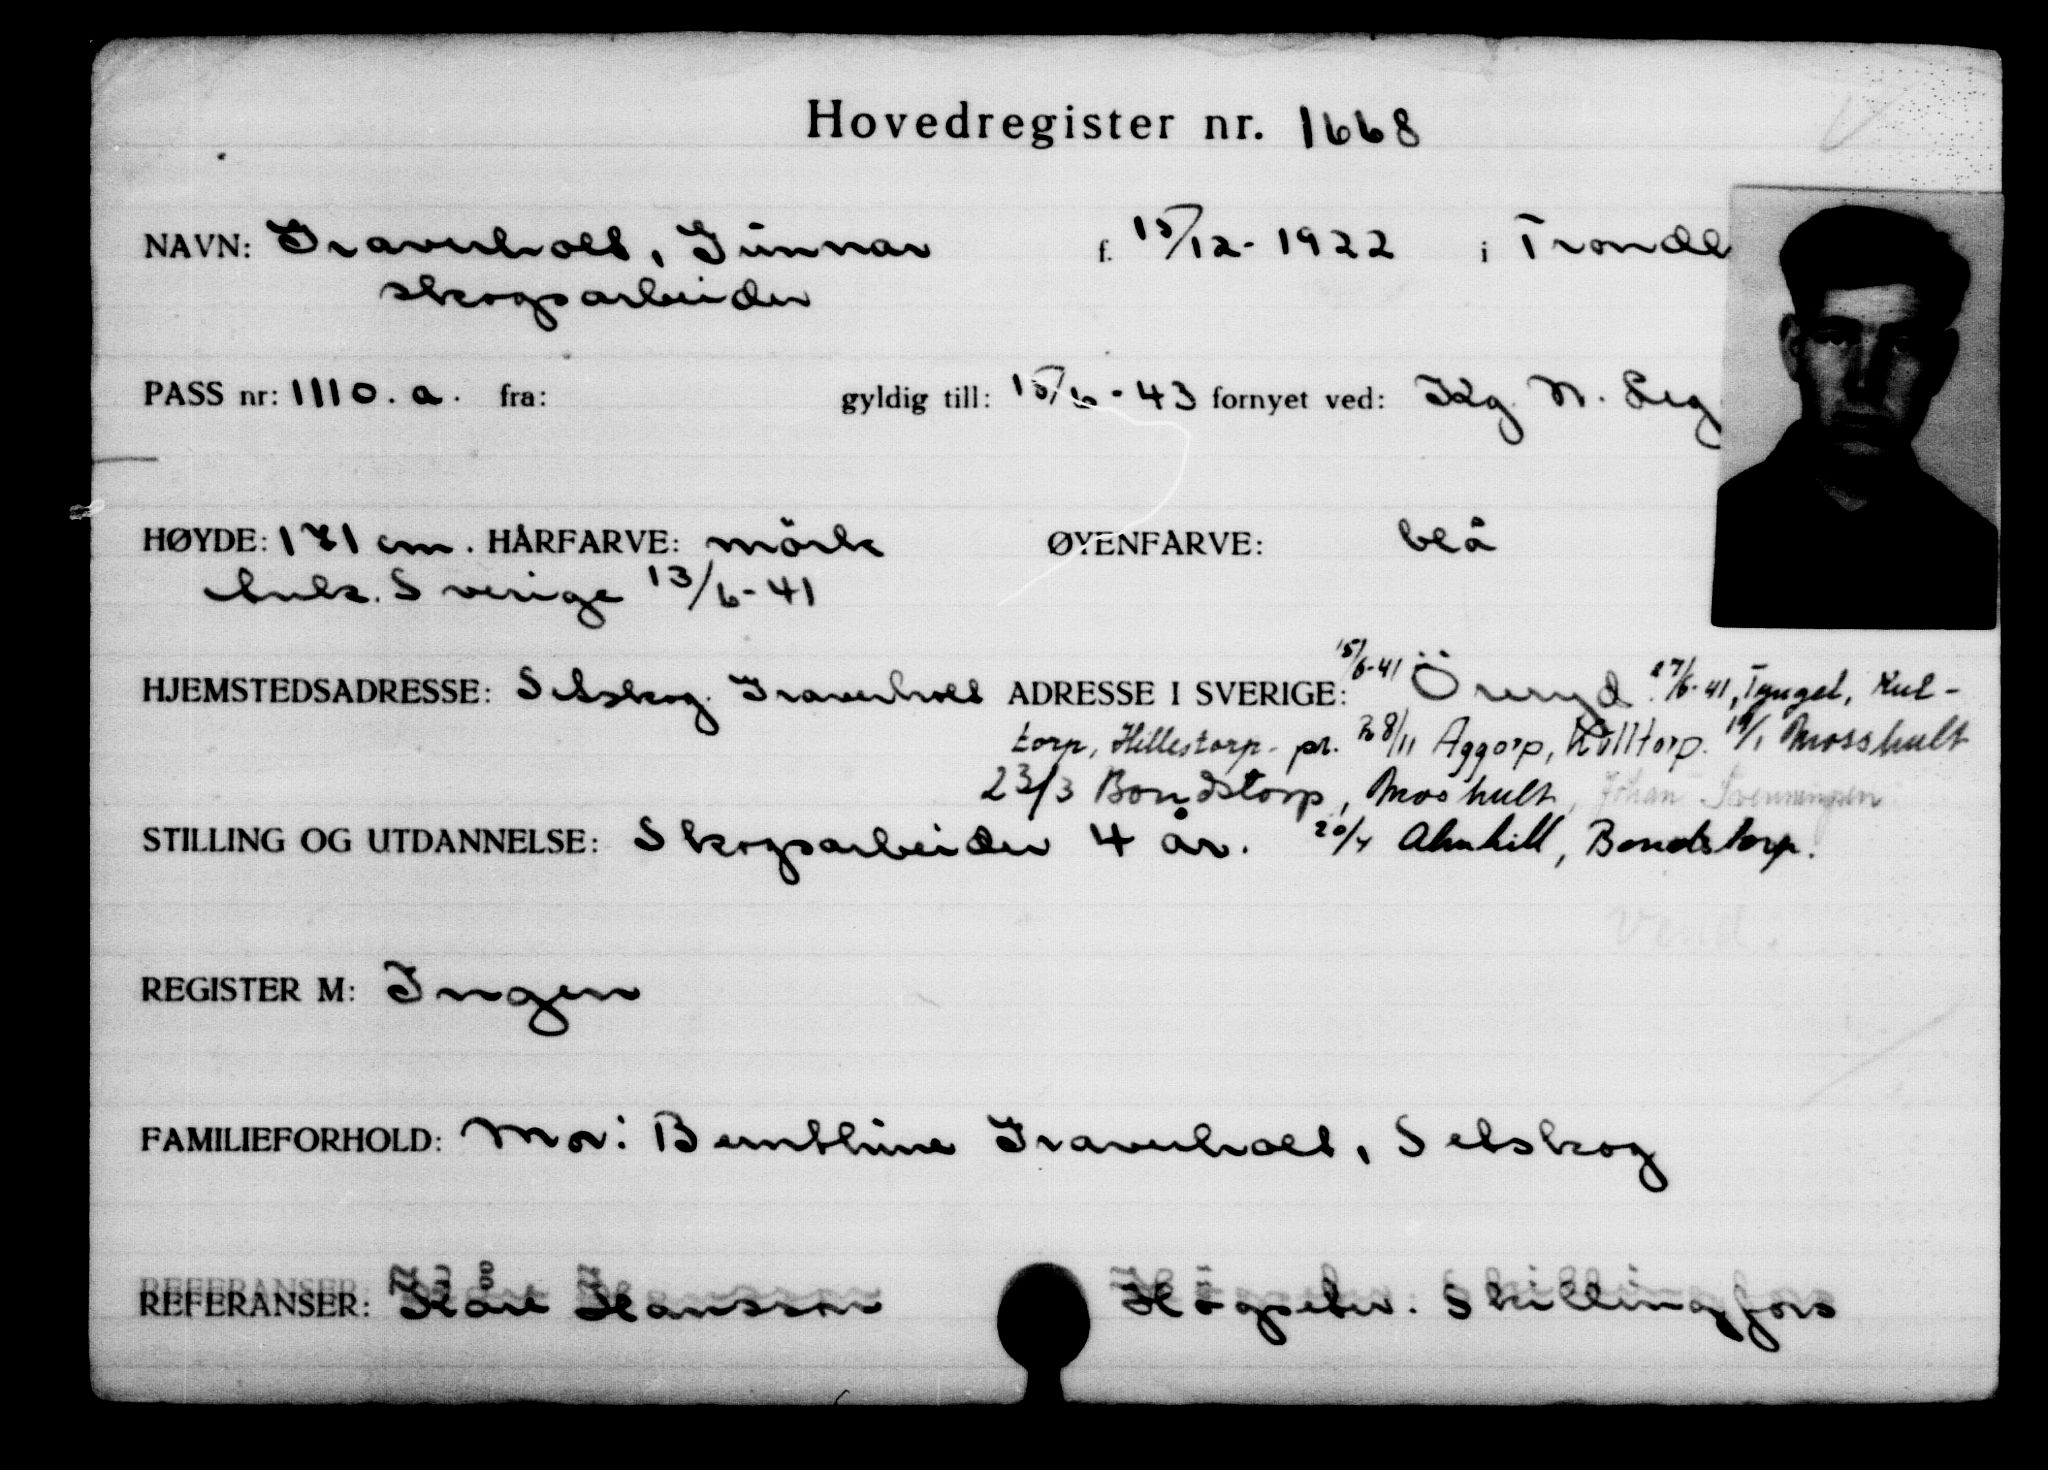 Hovedregister nr. 1668
NAVN: Graverholt, Gunnar f. 15/12-1922 i Trondh
skogsarbeider
PASS nr: 1110.a. fra: gyldig till: 15/6-43 fornyet ved: Kg. N. Leg
HØYDE: 181 cm. HÅRFARVE: mörk ØYENFARVE: blå
Ank. Sverige 13/6-41
HJEMSTEDSADRESSE: Setskog. Graverholt ADRESSE I SVERIGE: 15/6-41 Öreryd. 27/6-41, Tyngel, Kul-
torp, Hillestorp. pr. 8/11 Aggorp, Kulltorp. Mosshult
23/3 Bondstorp, Moshult, Johan
STILLING OG UTDANNELSE: Skogsarbeider 4 år. 20/4 Bondstorp.
vend.
REGISTER M: Ingen
FAMILIEFORHOLD: Mor: Bernthine Graverholt, Setskog
REFERANSER: Kåre Hansson Högseter. Skillingfors